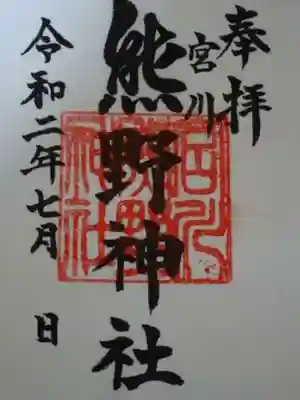 奉拝
宮川
熊野神社
令和二年七月 日